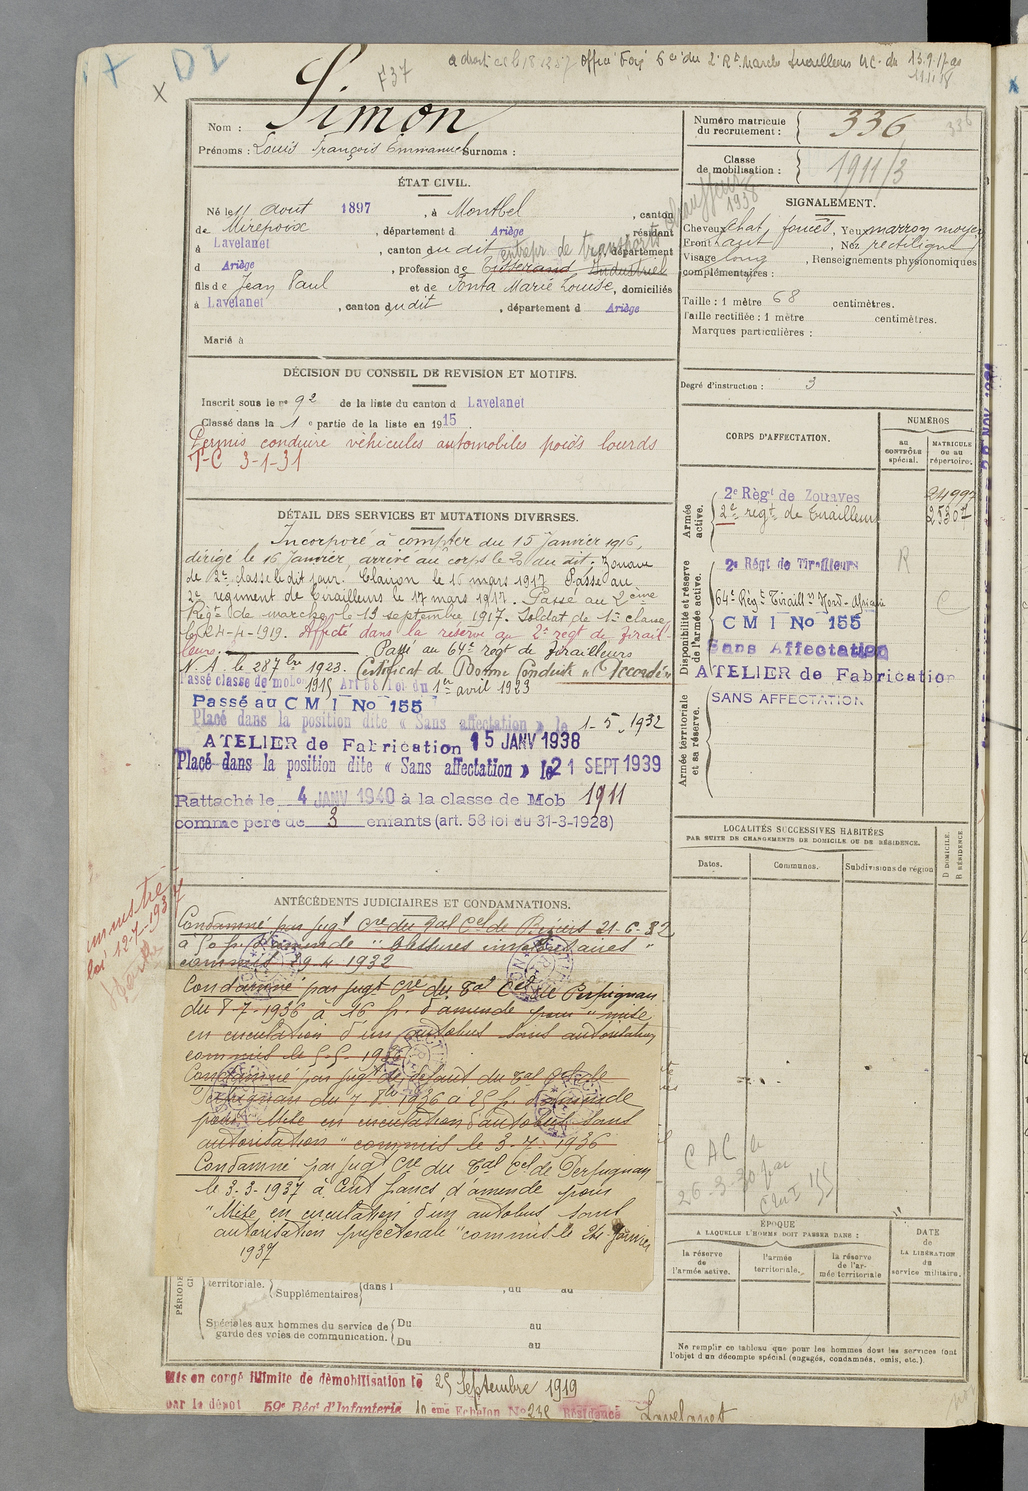 X DI
X F37
a droit Off Forg du 2e Rt Marche Tirailleurs UC du 13.9.17 au
11.11.18
Nom : Simon
Prénoms : Louis François Emmanuel Surnoms :
Numéro matricule
du recrutement : 336
336
Classe
de mobilisation : 1911/3
ÉTAT CIVIL.
Né le 11 aout 1897, à Montbel, canton
de Mirepoix, département d Ariège, résidant
à Lavelanet, canton du dit, département
entrepr de transports
d Ariège, profession de Tisserand Industriel
chauffeur
1938
fils de Jean Paul et de Ponta Marie Louise, domiciliés
à Lavelanet, canton du dit, département d Ariège
Marié à
SIGNALEMENT.
Cheveux chat. foncés, Yeux marron moyen
Front haut, Nez rectiligne
Visage long, Renseignements physionomiques
complémentaires :
Taille : 1 mètre 68 centimètres.
Taille rectifiée : 1 mètre centimètres.
Marques particulières :
Degré d'instruction : 3
DÉCISION DU CONSEIL DE REVISION ET MOTIFS.
Inscrit sous le no 92 de la liste du canton d Lavelanet
Classé dans la 1e partie de la liste en 1915
Permis conduire véhicules automobiles poids lourds
T-C 3-1-31
DÉTAIL DES SERVICES ET MUTATIONS DIVERSES.
Incorporé à compter du 15 Janvier 1916,
dirigé le 16 Janvier, arrivé au corps le 20 du dit. Zouave
de 2e classe le dit jour. Clairon le 16 mars 1917 Passé au
2e regiment de Tirailleurs le 17 mars 1917. Passé au 2eme
Régt de marche le 13 septembre 1917. Soldat de 1e classe
le 24-4-1919. Affecté dans la réserve au 2e regt de Tirail-
leurs. Passé au 64e régt de Tirailleurs
N. A. le 28 7bre 1923. Certificat de Bonne Conduite "Accordé"
Passé classe de mob. 1915 Art 58 Loi du 1er avril 1923
Passé au C M I No 155
Placé dans la position dite « Sans affectation » le 1-5-1932
ATELIER de Fabrication 15 JANV 1938
Placé dans la position dite « Sans affectation » le 21 SEPT 1939
Rattaché le 4 JANV 1940 à la classe de Mob 1911
comme père de 3 enfants (art. 58 loi du 31-3-1928)
CORPS D'AFFECTATION.
NUMÉROS
au
CONTRÔLE
spécial.
MATRICULE
ou au
répertoire.
Armée
active.
2e Régt de Zouaves 24997
2e regt de Tirailleurs 25307
Disponibilité et réserve
de l'armée active.
2e Régt de Tirailleurs R
64e Régt Tiraillrs Nord-Africain C
C M I No 155
Sans Affectation
ATELIER de Fabrication
Armée territoriale
et sa réserve.
SANS AFFECTATION
LOCALITÉS SUCCESSIVES HABITÉES
PAR SUITE DE CHANGEMENTS DE DOMICILE OU DE RÉSIDENCE.
Dates.
Communes.
Subdivisions de région
D DOMICILE.
R RÉSIDENCE.
CAC le
26-3-30 par
CMI 155
ANTÉCÉDENTS JUDICIAIRES ET CONDAMNATIONS.
amnistié
loi 12-7-1937
Condamné par jugt cre du Bal Cel de Béziers 21-6-32
à 50 fr d'amende "blessures involontaires"
commis 29-4-1932
Condamné par jugt cre du Tal Cel de Perpignan
du 8-7-1936 à 16 fr. d'amende pour "mise
en circulation d'un autobus sans autorisation
commis le 5-5-1936
Condamné par jugt de défaut du Tal Cel de
Perpignan du 7 8bre 1936 à 25 f d'amende
pour Mise en circulation d'autobus sans
autorisation" commis le 3-7-1936
Condamné par jugt Cre du Tal Cel de Perpignan
le 3-3-1937 à Cent francs d'amende pour
"Mise en circulation d'un autobus sans
autorisation préfectorale" commis le 24 Janvier
1937
ÉPOQUE
A LAQUELLE L'HOMME DOIT PASSER DANS :
la réserve
de
l'armée active.
l'armée
territoriale.
la réserve
de l'ar-
mée territoriale
DATE
de
LA LIBÉRATION
du
service militaire.
PÉRIODE
territoriale.
Supplémentaires dans l , du au
Spéciales aux hommes du service de
garde des voies de communication.
Du au
Du au
Ne remplir ce tableau que pour les hommes dont les services font
l'objet d'un décompte spécial (engagés, condamnés, omis, etc.)
Mis en congé illimité de démobilisation le 25 Septembre 1919
par le dépôt 59e Régt d'Infanterie 10 eme Echelon No 232 Résidence Lavelanet